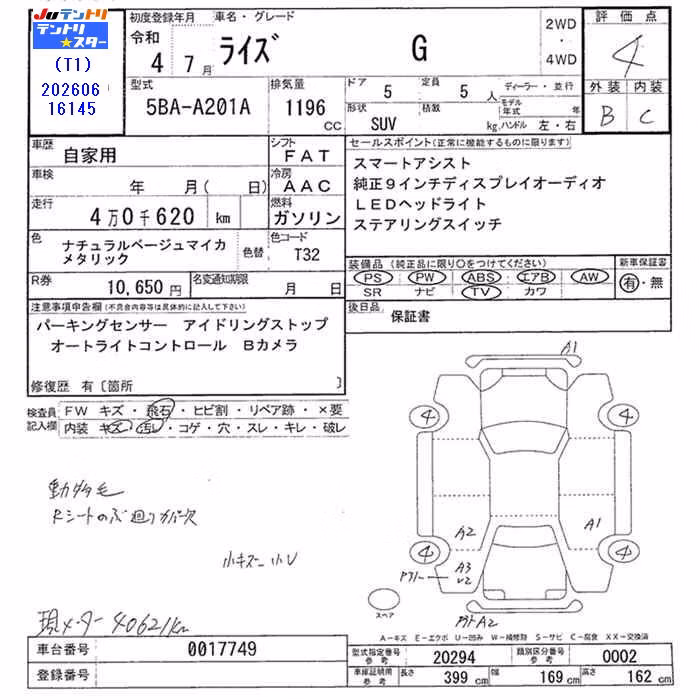 JU テントリ
テントリ
★スター
(T1)
202606
16145
初度登録年月
車名・グレード
令和
4 7月
ライズ G
2WD
・
4WD
評価点
4
外装 内装
B C
型式
5BA-A201A
排気量
1196
cc
ドア 5
定員 5 人
形状
SUV
積載
kg
ディーラー・並行
モデル年式 年
ハンドル 左・右
車歴
自家用
シフト
FAT
車検
年 月( 日)
冷房
AAC
走行
4万0千620 km
燃料
ガソリン
色
ナチュラルベージュマイカ
メタリック
色替
色コード
T32
R券
10,650 円
名変通知期限
月 日
セールスポイント(正常に機能するものに限ります)
スマートアシスト
純正9インチディスプレイオーディオ
LEDヘッドライト
ステアリングスイッチ
装備品(純正品に限り○をつけてください)
PS PW ABS エアB AW
SR ナビ TV カワ
新車保証書
有・無
後日品
保証書
注意事項申告欄(不具合内容等は具体的に記入して下さい)
パーキングセンサー アイドリングストップ
オートライトコントロール Bカメラ
修復歴 有〔箇所 〕
検査員
記入欄
FW キズ・飛石・ヒビ割・リペア跡・×要
内装 キズ・汚レ・コゲ・穴・スレ・キレ・破レ
小キズ 小U
現メーター 40621km
A1
4
4
A2
A1
4
4
A3
U2
A2
スペア
A-キズ E-エクボ U-凹み W-補修跡 S-サビ C-腐食 XX-交換済
車台番号
0017749
登録番号
型式指定番号
参考
20294
類別区分番号
参考
0002
車庫証明用
参考
長さ 399 cm
幅 169 cm
高さ 162 cm